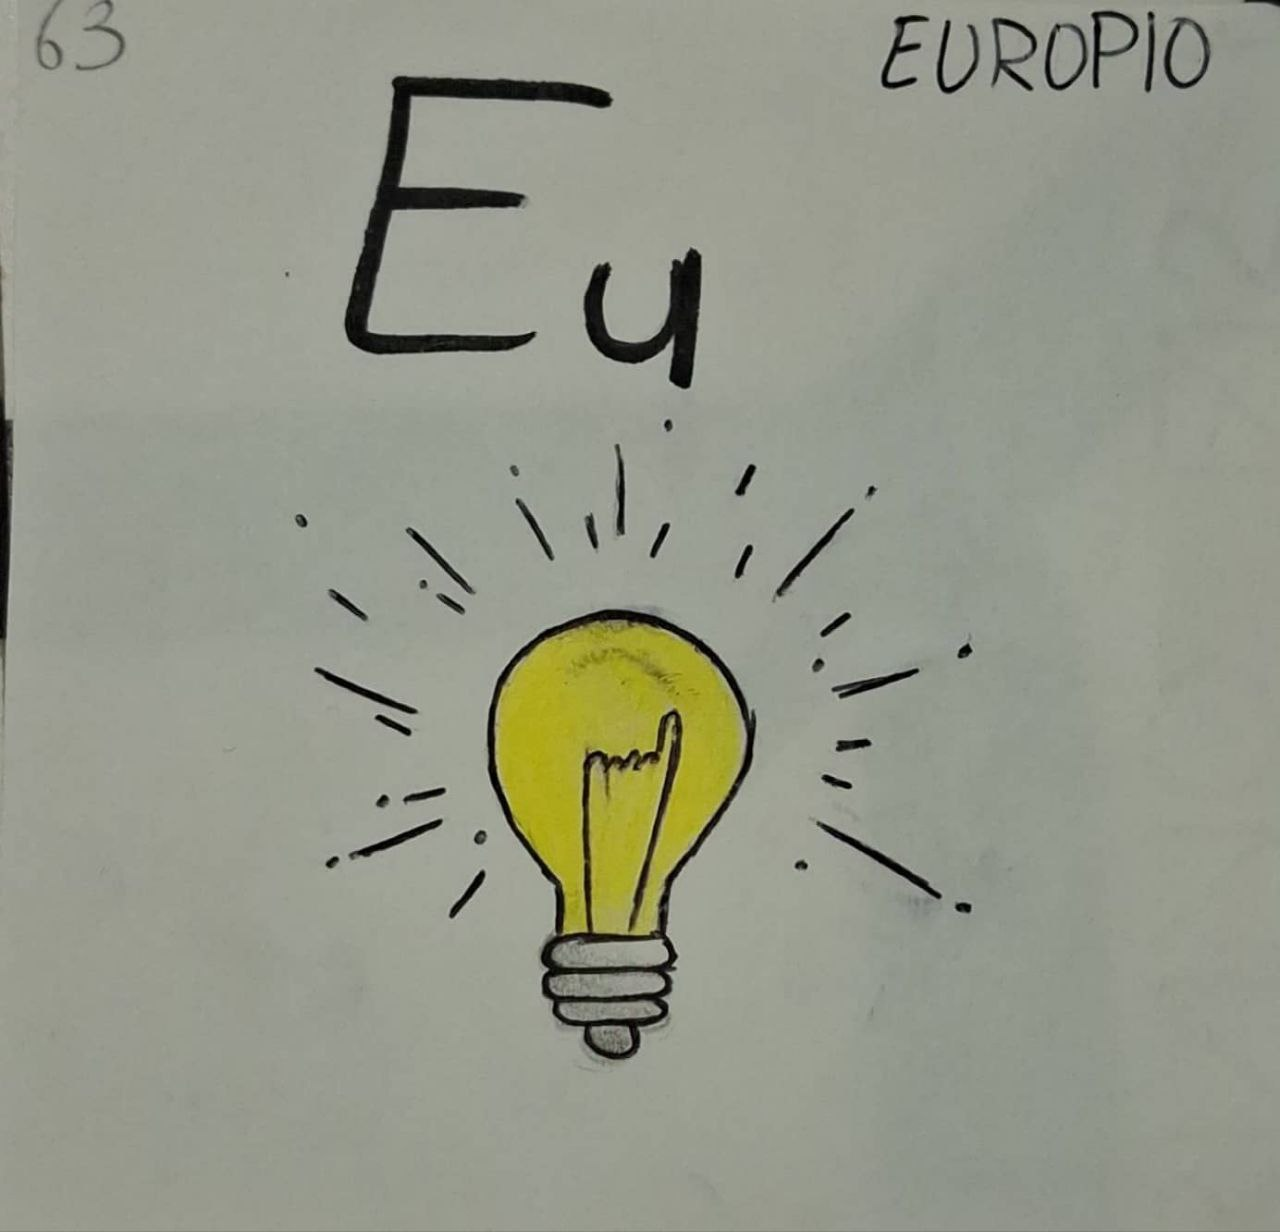 63
EUROPIO
Eu